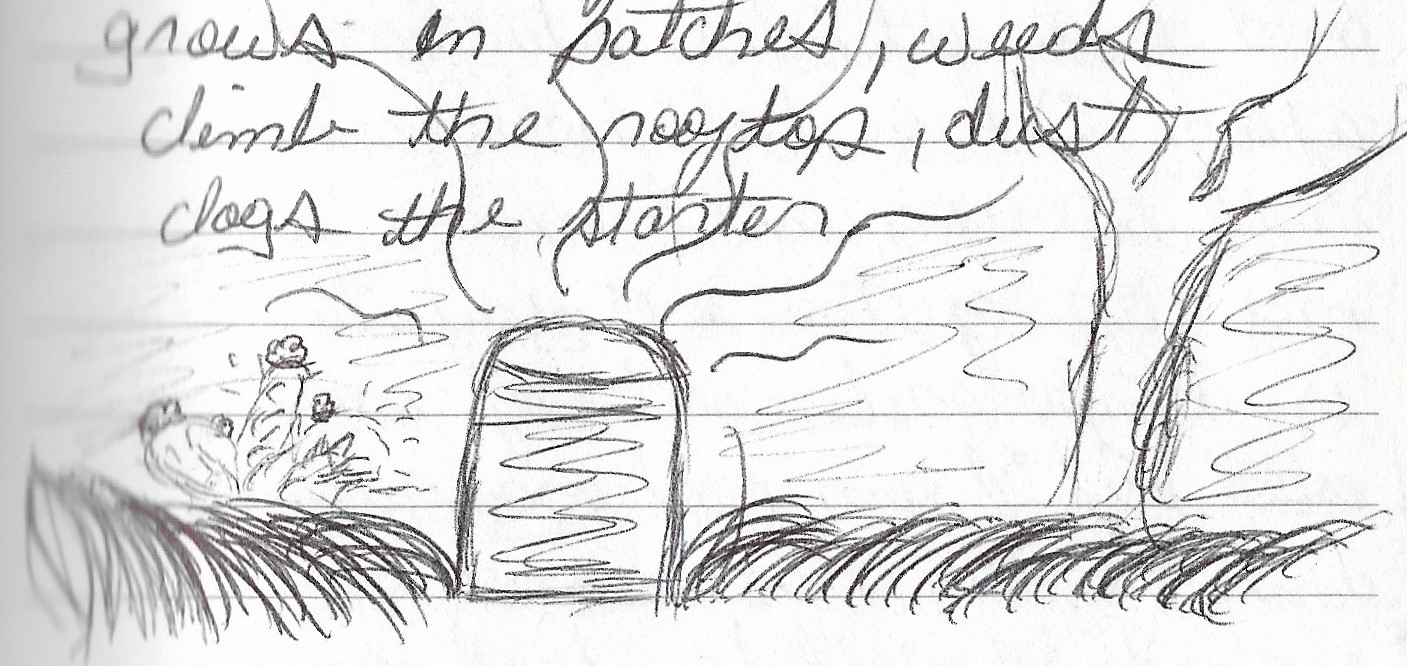 grows in patches, weeds
climb the rooftop, dust
clogs the starter